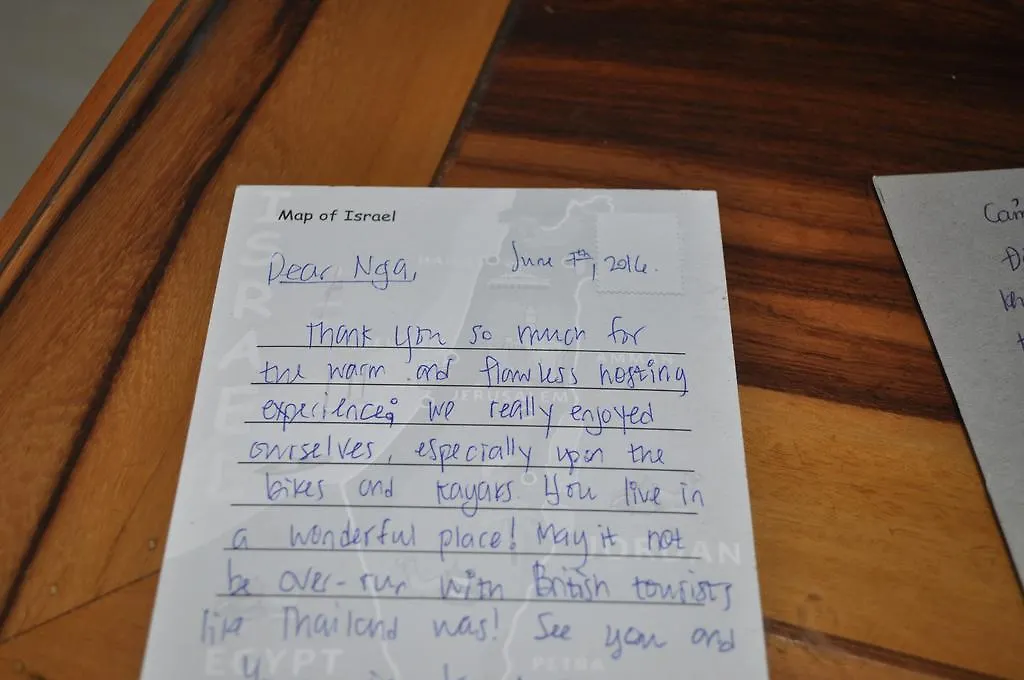 Map of Israel
Dear Nga,
June 7th, 2016.
Thank you so much for
the warm and flawless hosting
experience; we really enjoyed
ourselves, especially upon the
bikes and kayaks. You live in
a wonderful place! May it not
be over-run with British tourists
like Thailand was! See you and
ISRAEL
JERUSALEM
AMMAN
JORDAN
EGYPT
PETRA
Cảm